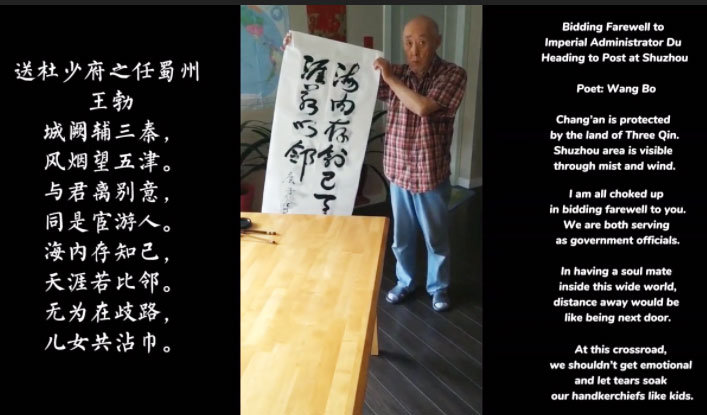 送杜少府之任蜀州
王勃
城阙辅三秦，
风烟望五津。
与君离别意，
同是宦游人。
海内存知己，
天涯若比邻。
无为在歧路，
儿女共沾巾。
海内存知己天
涯若比邻
Bidding Farewell to
Imperial Administrator Du
Heading to Post at Shuzhou
Poet: Wang Bo
Chang'an is protected
by the land of Three Qin.
Shuzhou area is visible
through mist and wind.
I am all choked up
in bidding farewell to you.
We are both serving
as government officials.
In having a soul mate
inside this wide world,
distance away would be
like being next door.
At this crossroad,
we shouldn't get emotional
and let tears soak
our handkerchiefs like kids.